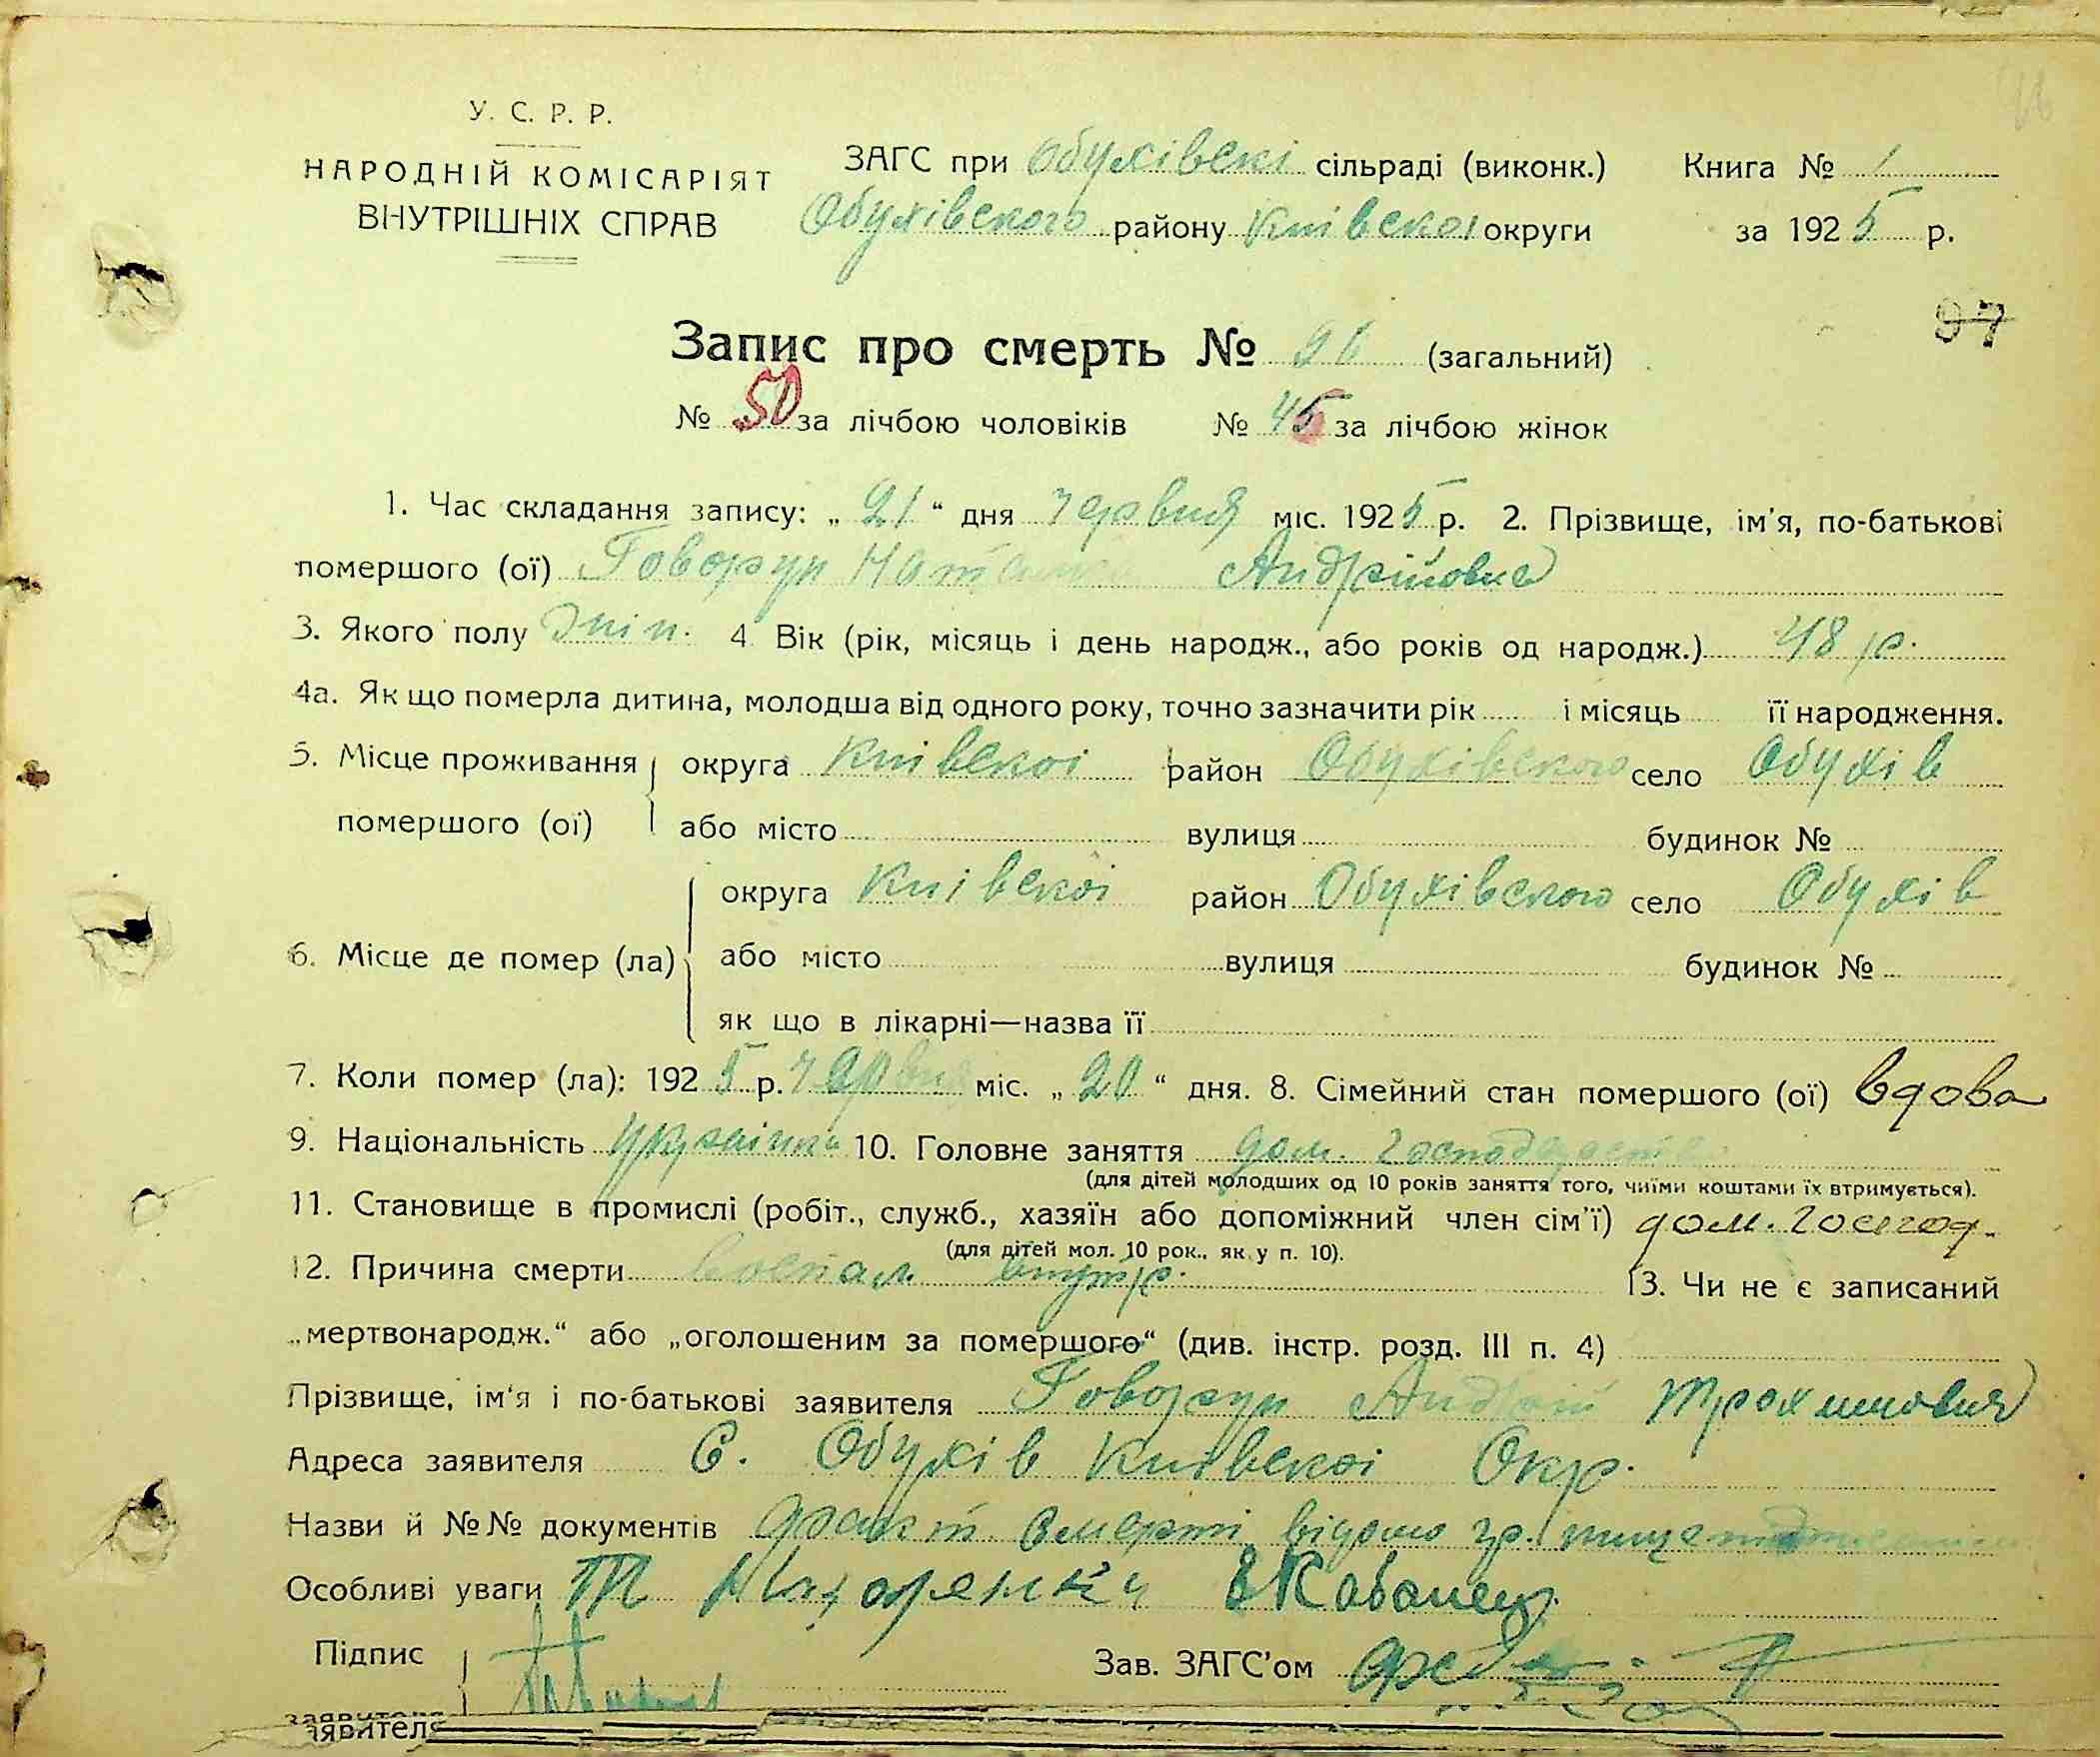 У. С. Р. Р.
НАРОДНІЙ КОМІСАРІЯТ
ВНУТРІШНІХ СПРАВ
ЗАГС при Обухівскі сільраді (виконк.) Книга № 1
Обухівского району Киівскоі округи за 1925 р.
97
Запис про смерть № 96 (загальний)
№ 50 за лічбою чоловіків № 45 за лічбою жінок
1. Час складання запису: „ 21 “ дня червня міс. 1925 р. 2. Прізвище, ім'я, по-батькові
помершого (ої) Говорун Наталия Андрійовна
3. Якого полу жін. 4. Вік (рік, місяць і день народж., або років од народж.) 48 р.
4а. Як що померла дитина, молодша від одного року, точно зазначити рік і місяць її народження.
5. Місце проживання округа Киівскоі район Обухівского село Обухів
помершого (ої) або місто вулиця будинок №
округа Киівскоі район Обухівского село Обухів
6. Місце де помер (ла) або місто вулиця будинок №
як що в лікарні—назва її
7. Коли помер (ла): 1925 р. червня міс. „ 20 “ дня. 8. Сімейний стан помершого (ої) вдова
9. Національність українка 10. Головне заняття дом. господарство
(для дітей молодших од 10 років заняття того, чиїми коштами їх втримується).
11. Становище в промислі (робіт., служб., хазяїн або допоміжний член сім'ї) дом. господ.
(для дітей мол. 10 рок., як у п. 10).
12. Причина смерти воспал. внутр. 13. Чи не є записаний
„мертвонародж.“ або „оголошеним за помершого“ (див. інстр. розд. III п. 4)
Прізвище, ім'я і по-батькові заявителя Говорун Андрій Трохимовия
Адреса заявителя С. Обухів Киівскоі Окр.
Назви й №№ документів факт смерті відомо гр.
Особливі уваги Т ЗКабанец
Підпис Зав. ЗАГС'ом
заявителя